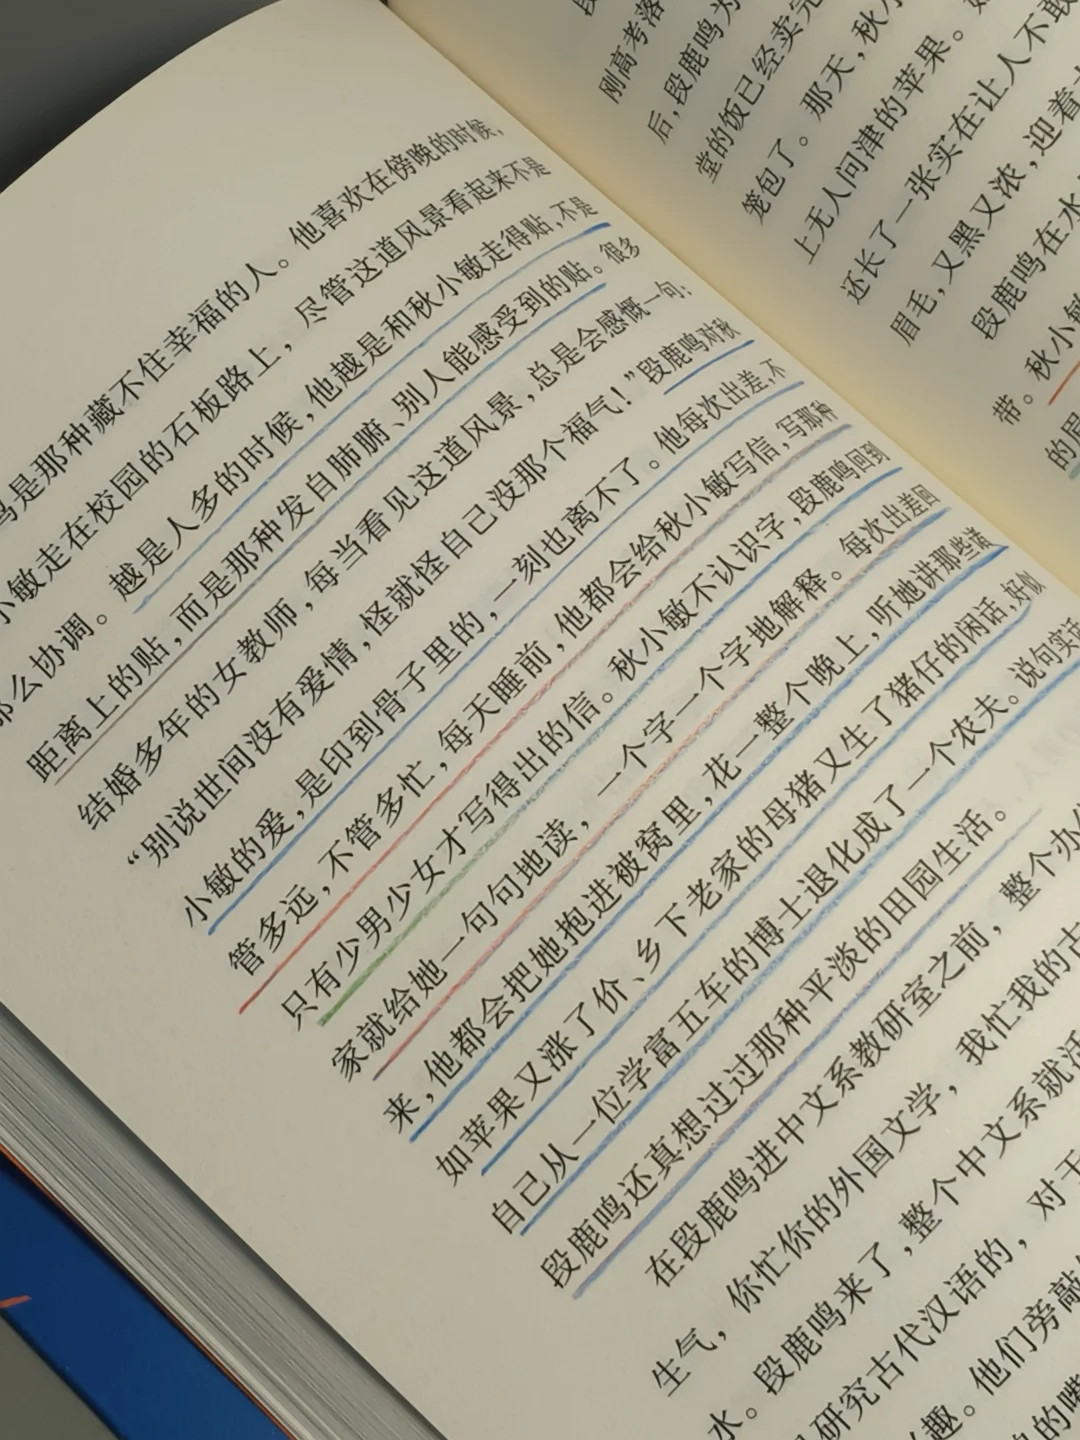 鸣是那种藏不住幸福的人。他喜欢在傍晚的时候,
小敏走在校园的石板路上，尽管这道风景看起来不是
那么协调。越是人多的时候,他越是和秋小敏走得贴,不是
距离上的贴,而是那种发自肺腑、别人能感受到的贴。很多
结婚多年的女教师,每当看见这道风景,总是会感慨一句:
“别说世间没有爱情,怪就怪自己没那个福气!”段鹿鸣对秋
小敏的爱,是印到骨子里的,一刻也离不了。他每次出差,不
管多远,不管多忙,每天睡前,他都会给秋小敏写信,写那种
只有少男少女才写得出的信。秋小敏不认识字,段鹿鸣回到
家就给她一句句地读,一个字一个字地解释。每次出差回
来,他都会把她抱进被窝里,花一整个晚上,听她讲那些诸
如苹果又涨了价、乡下老家的母猪又生了猪仔的闲话,好似
自己从一位学富五车的博士退化成了一个农夫。说句实话
段鹿鸣还真想过过那种平淡的田园生活。
在段鹿鸣进中文系教研室之前，整个办
生气，你忙你的外国文学，我忙我的古
水。段鹿鸣来了,整个中文系就活
研究古代汉语的，对于
趣。他们旁敲
的嘴
刚高考落
后,段鹿鸣为
堂的饭已经卖完
笼包了。那天,秋小
上无人问津的苹果。
还长了一张实在让人不敢
眉毛,又黑又浓,迎着
段鹿鸣在水
带。秋小敏
的眉